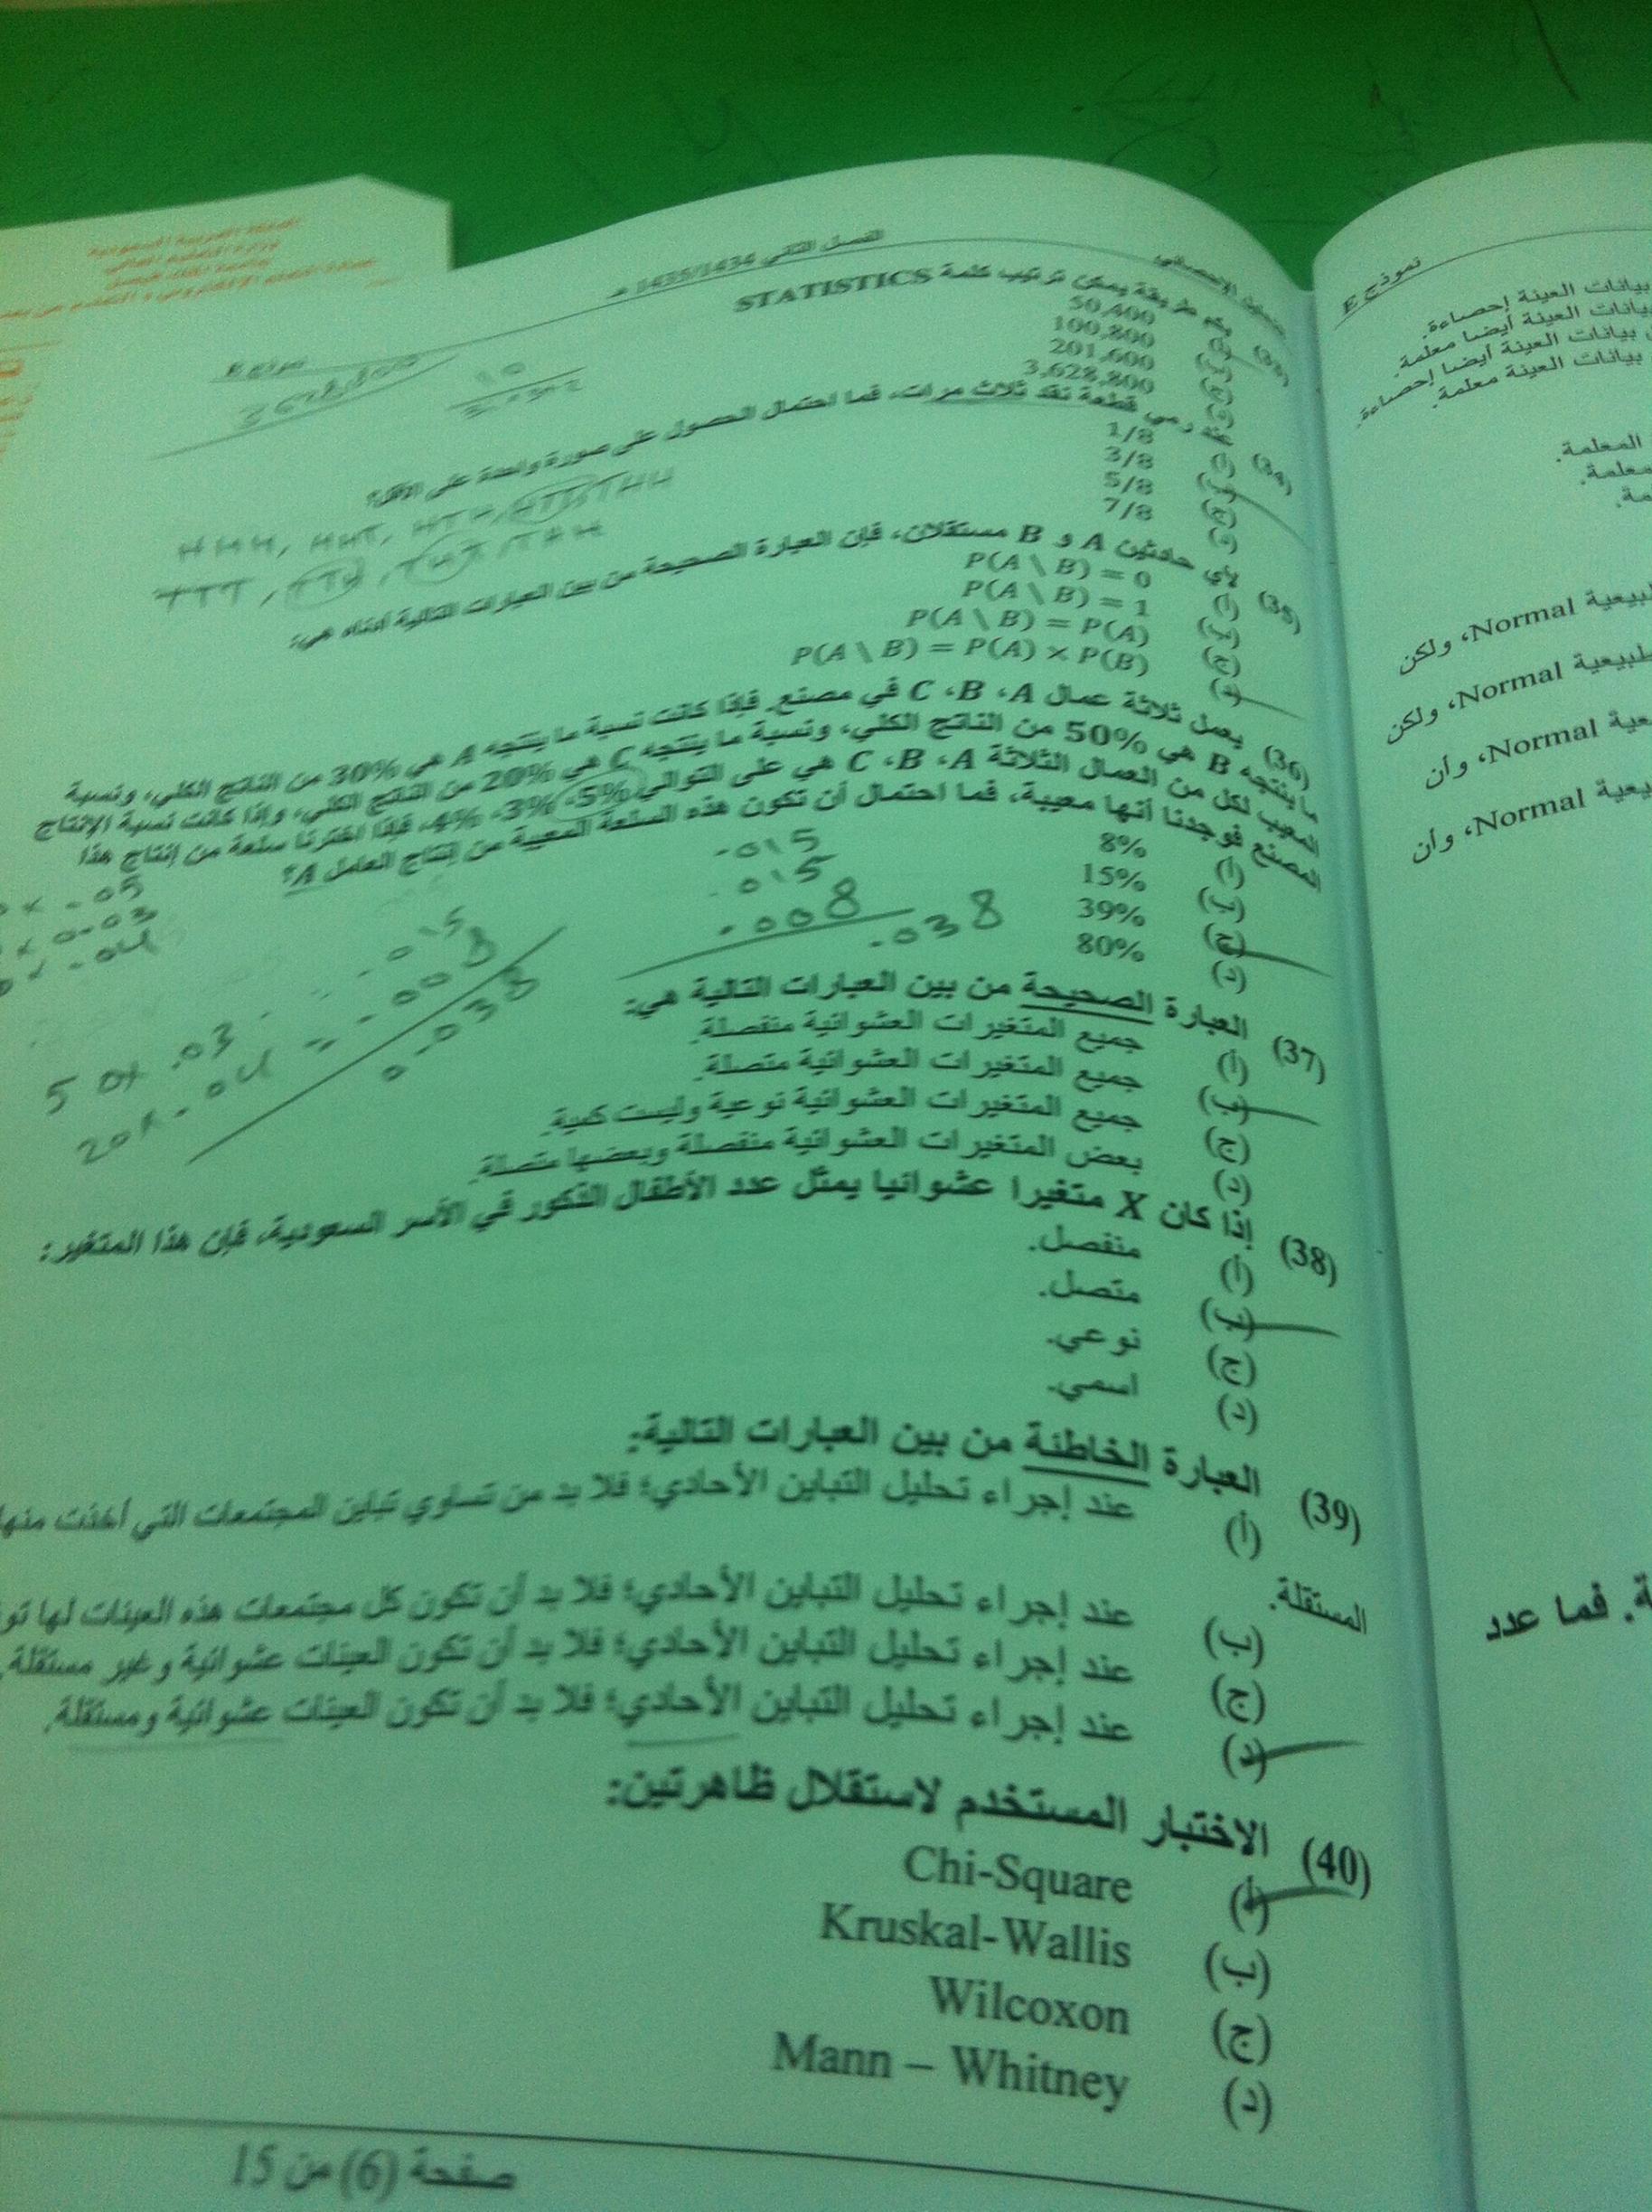 نموذج E
الفصل الثاني 1435/1434 هـ
(33) بكم طريقة يمكن ترتيب كلمة STATISTICS
(أ) 50,400
(ب) 100,800
(ج) 201,600
(د) 3,628,800
(34) عند رمي قطعة نقد ثلاث مرات، فما احتمال الحصول على صورة واحدة على الأقل؟
(أ) 1/8
(ب) 3/8
(ج) 5/8
(د) 7/8
HHH, HHT, HTH, HTT, THH
TTT, TTH, THT, THH
(35) لأي حادثين A و B مستقلان، فإن العبارة الصحيحة من بين العبارات التالية أدناه هي:
(أ) P(A \ B) = 0
(ب) P(A \ B) = 1
(ج) P(A \ B) = P(A)
(د) P(A \ B) = P(A) × P(B)
(36) يعمل ثلاثة عمال C ،B ،A في مصنع. فإذا كانت نسبة ما ينتجه A هي 30% من الناتج الكلي، ونسبة
ما ينتجه B هي 50% من الناتج الكلي، ونسبة ما ينتجه C هي 20% من الناتج الكلي، وإذا كانت نسبة الإنتاج
المعيب لكل من العمال الثلاثة C ،B ،A هي على التوالي 5%، 3%، 4%، فإذا اخترنا سلعة من إنتاج هذا
المصنع فوجدنا أنها معيبة، فما احتمال أن تكون هذه السلعة المعيبة من إنتاج العامل A؟
(أ) 8%
(ب) 15%
(ج) 39%
(د) 80%
.015
.015
.008
.038
× .05
× 0.03
× .04
.015
50× .03
20×.04 = .008
0.038
(37) العبارة الصحيحة من بين العبارات التالية هي:
(أ) جميع المتغيرات العشوائية منفصلة.
(ب) جميع المتغيرات العشوائية متصلة.
(ج) جميع المتغيرات العشوائية نوعية وليست كمية.
(د) بعض المتغيرات العشوائية منفصلة وبعضها متصلة.
(38) إذا كان X متغيرا عشوائيا يمثل عدد الأطفال الذكور في الأسر السعودية، فإن هذا المتغير:
(أ) منفصل.
(ب) متصل.
(ج) نوعي.
(د) اسمي.
(39) العبارة الخاطئة من بين العبارات التالية:
(أ) عند إجراء تحليل التباين الأحادي؛ فلا بد من تساوي تباين المجتمعات التي أخذت منها
المستقلة.
(ب) عند إجراء تحليل التباين الأحادي؛ فلا بد أن تكون كل مجتمعات هذه العينات لها
(ج) عند إجراء تحليل التباين الأحادي؛ فلا بد أن تكون العينات عشوائية وغير مستقلة.
(د) عند إجراء تحليل التباين الأحادي؛ فلا بد أن تكون العينات عشوائية ومستقلة.
(40) الاختبار المستخدم لاستقلال ظاهرتين:
(أ) Chi-Square
(ب) Kruskal-Wallis
(ج) Wilcoxon
(د) Mann – Whitney
صفحة (6) من 15
نموذج E
بيانات العينة إحصاءة.
بيانات العينة أيضا معلمة.
بيانات العينة أيضا إحصاءة.
بيانات العينة معلمة.
المعلمة.
Normal، ولكن
Normal، ولكن
Normal، وأن
Normal، وأن
فما عدد